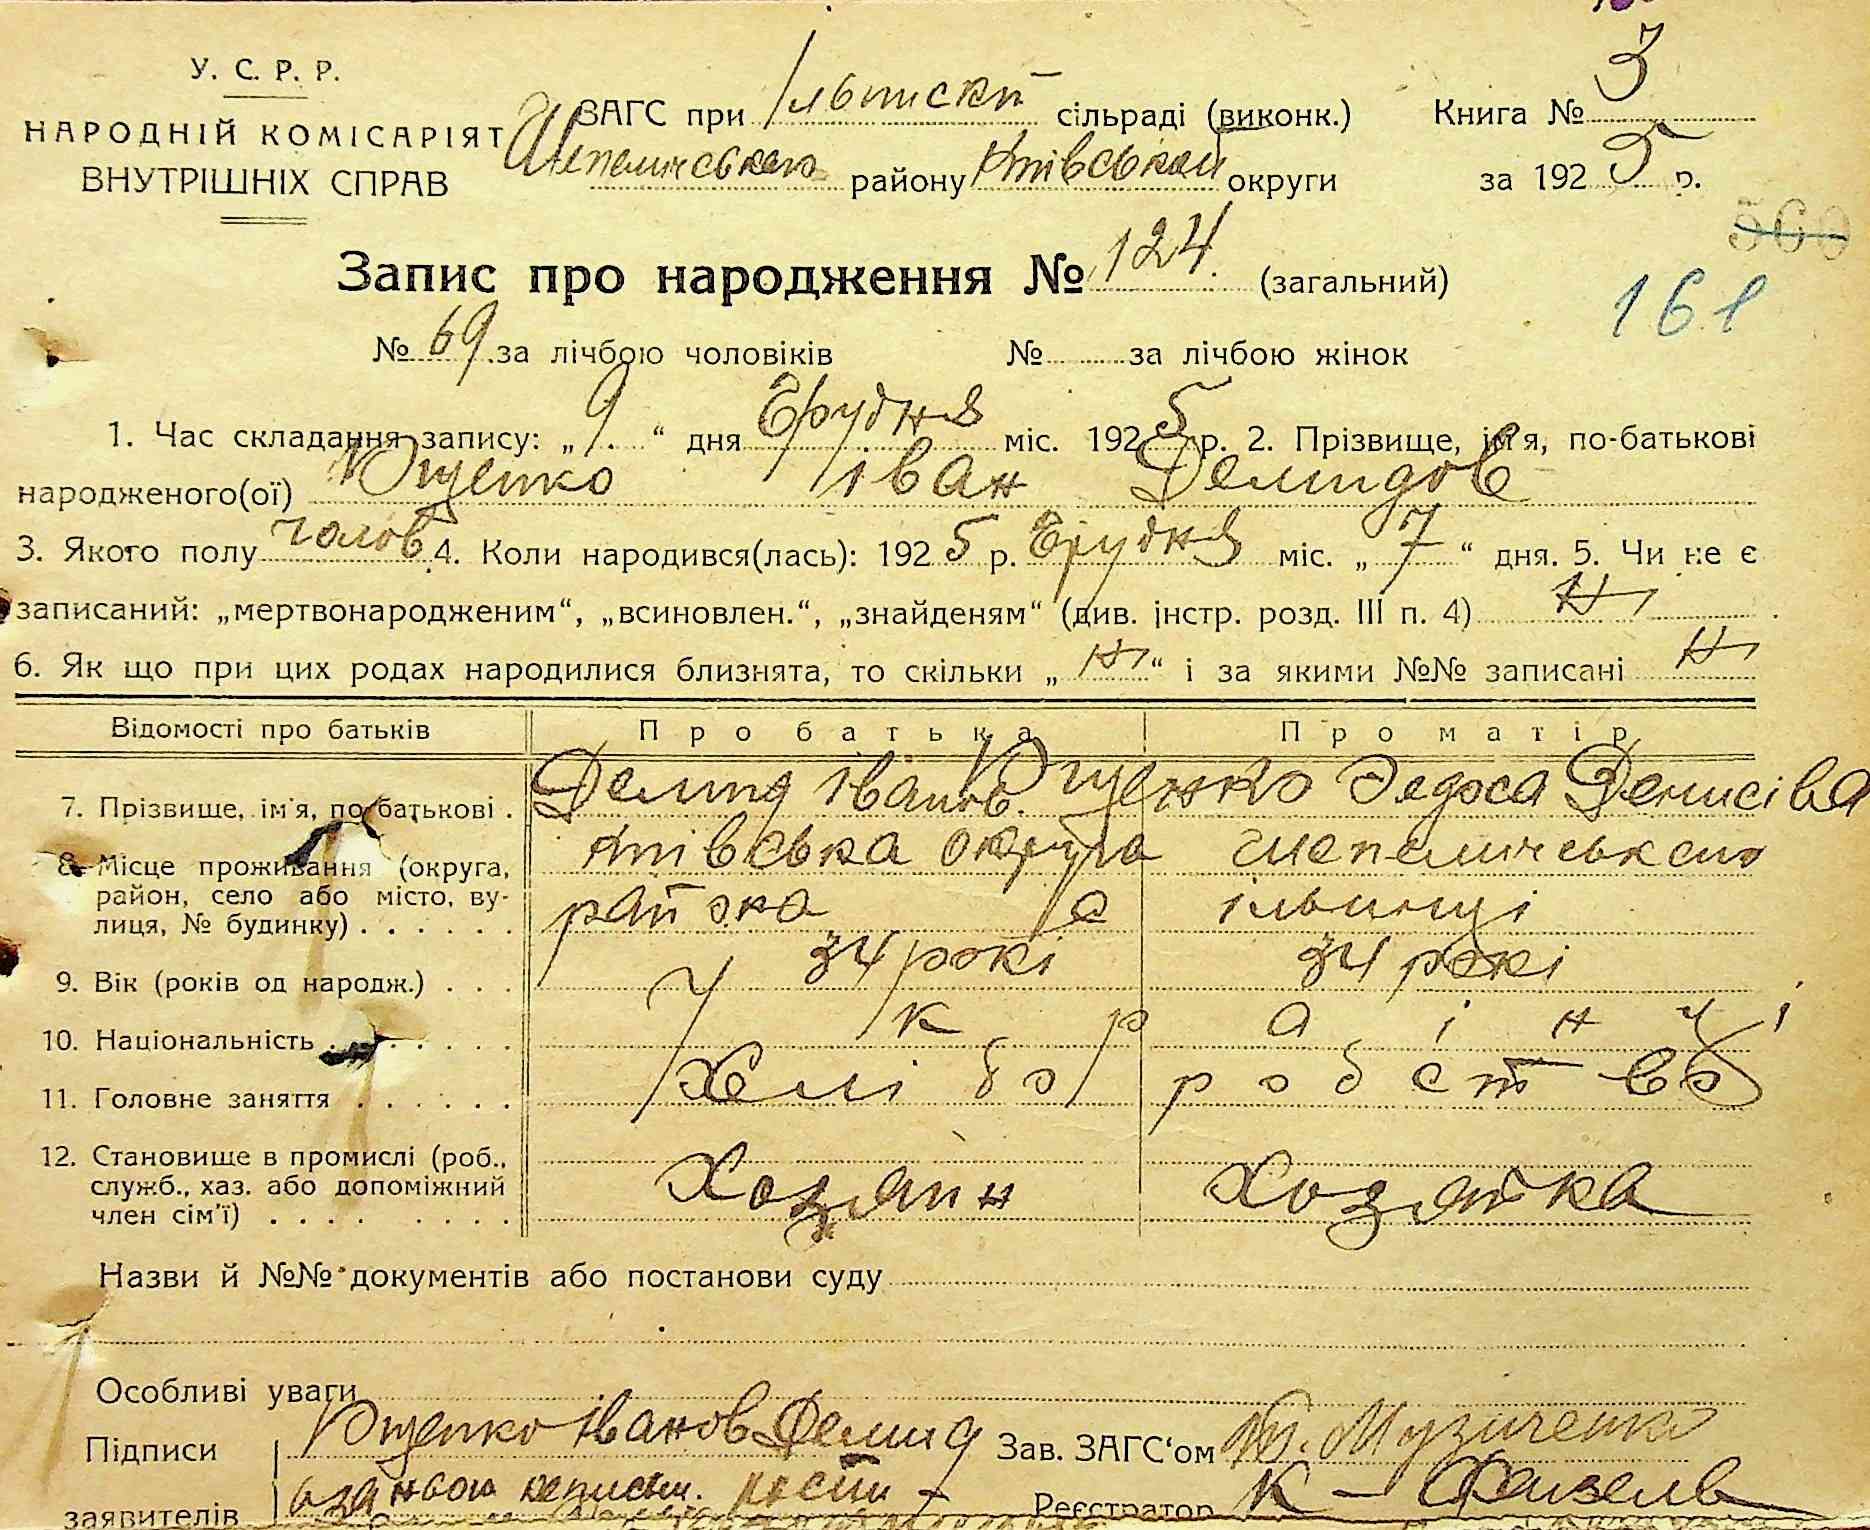 У. С. Р. Р.
НАРОДНІЙ КОМІСАРІЯТ
ВНУТРІШНІХ СПРАВ
ЗАГС при сільраді (виконк.)
району округи
Книга № 3
за 1925 р.
560
161
Запис про народження № 124. (загальний)
№ 69 за лічбою чоловіків № за лічбою жінок
1. Час складання запису: „9“ дня Грудня міс. 1925 р. 2. Прізвище, ім'я, по-батькові
народженого(ої) Ющенко Іван Демидов
3. Якого полу голов 4. Коли народився(лась): 1925 р. Грудня міс. „7“ дня. 5. Чи не є
записаний: „мертвонародженим“, „всиновлен.“, „знайденям“ (див. інстр. розд. III п. 4) Ні
6. Як що при цих родах народилися близнята, то скільки „Ні“ і за якими №№ записані Ні
Відомості про батьків Про батька Про матір
7. Прізвище, ім'я, по батькові . Демид Іванов. Ющенко Федоса Денисіва
8. Місце проживання (округа, Київська округа
район, село або місто, ву- района с ільинці
лиця, № будинку) . . . . . .
9. Вік (років од народж.) . . . 34 рокі 34 рокі
10. Національність . . . . . . Українчі
11. Головне заняття . . . . . . Хлібо робство
12. Становище в промислі (роб.,
служб., хаз. або допоміжний Хозяин Хозяйка
член сім'ї) . . . . . . . .
Назви й №№ документів або постанови суду
Особливі уваги
Підписи Ющенко Іванов Демид Зав. ЗАГС‘ом Музиченко
заявителів Реєстратор К